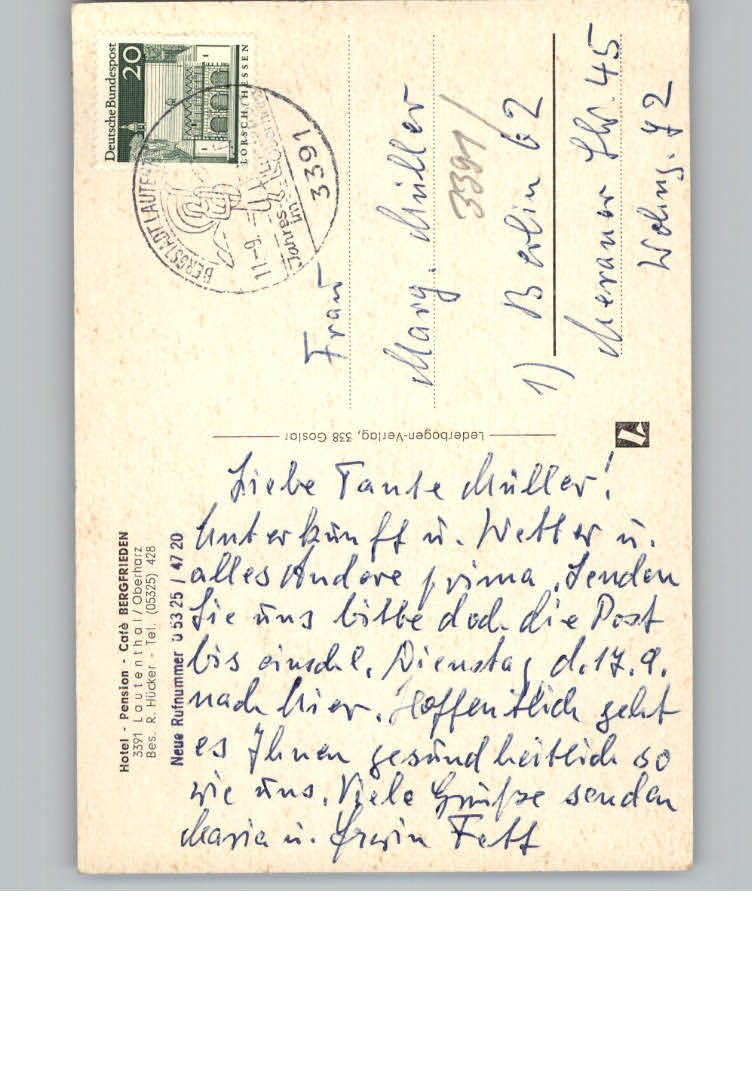 Hotel - Pension - Café BERGFRIEDEN
3391 Lautenthal/Oberharz
Bes. R. Hücker - Tel. (05325) 428
Neue Rufnummer 0 53 25 / 47 20
Liebe Tante Müller!
Unterkunft u. Wetter u.
alles Andere prima. Senden
Sie uns bitte doch die Post
bis einschl. Dienstag d. 17.9.
nach hier. Hoffentlich geht
es Ihnen gesundheitlich so
wie uns. Viele Grüße senden
Maria u. Erwin Fett
Lederbogen-Verlag, 338 Goslar
Deutsche Bundespost
20
LORSCH/HESSEN
BERGSTADT LAUTENTHAL
11-9.
im
3391
Frau
Marg. Müller
3391/
1) Berlin 62
Meraner Str. 45
Wohng. 72